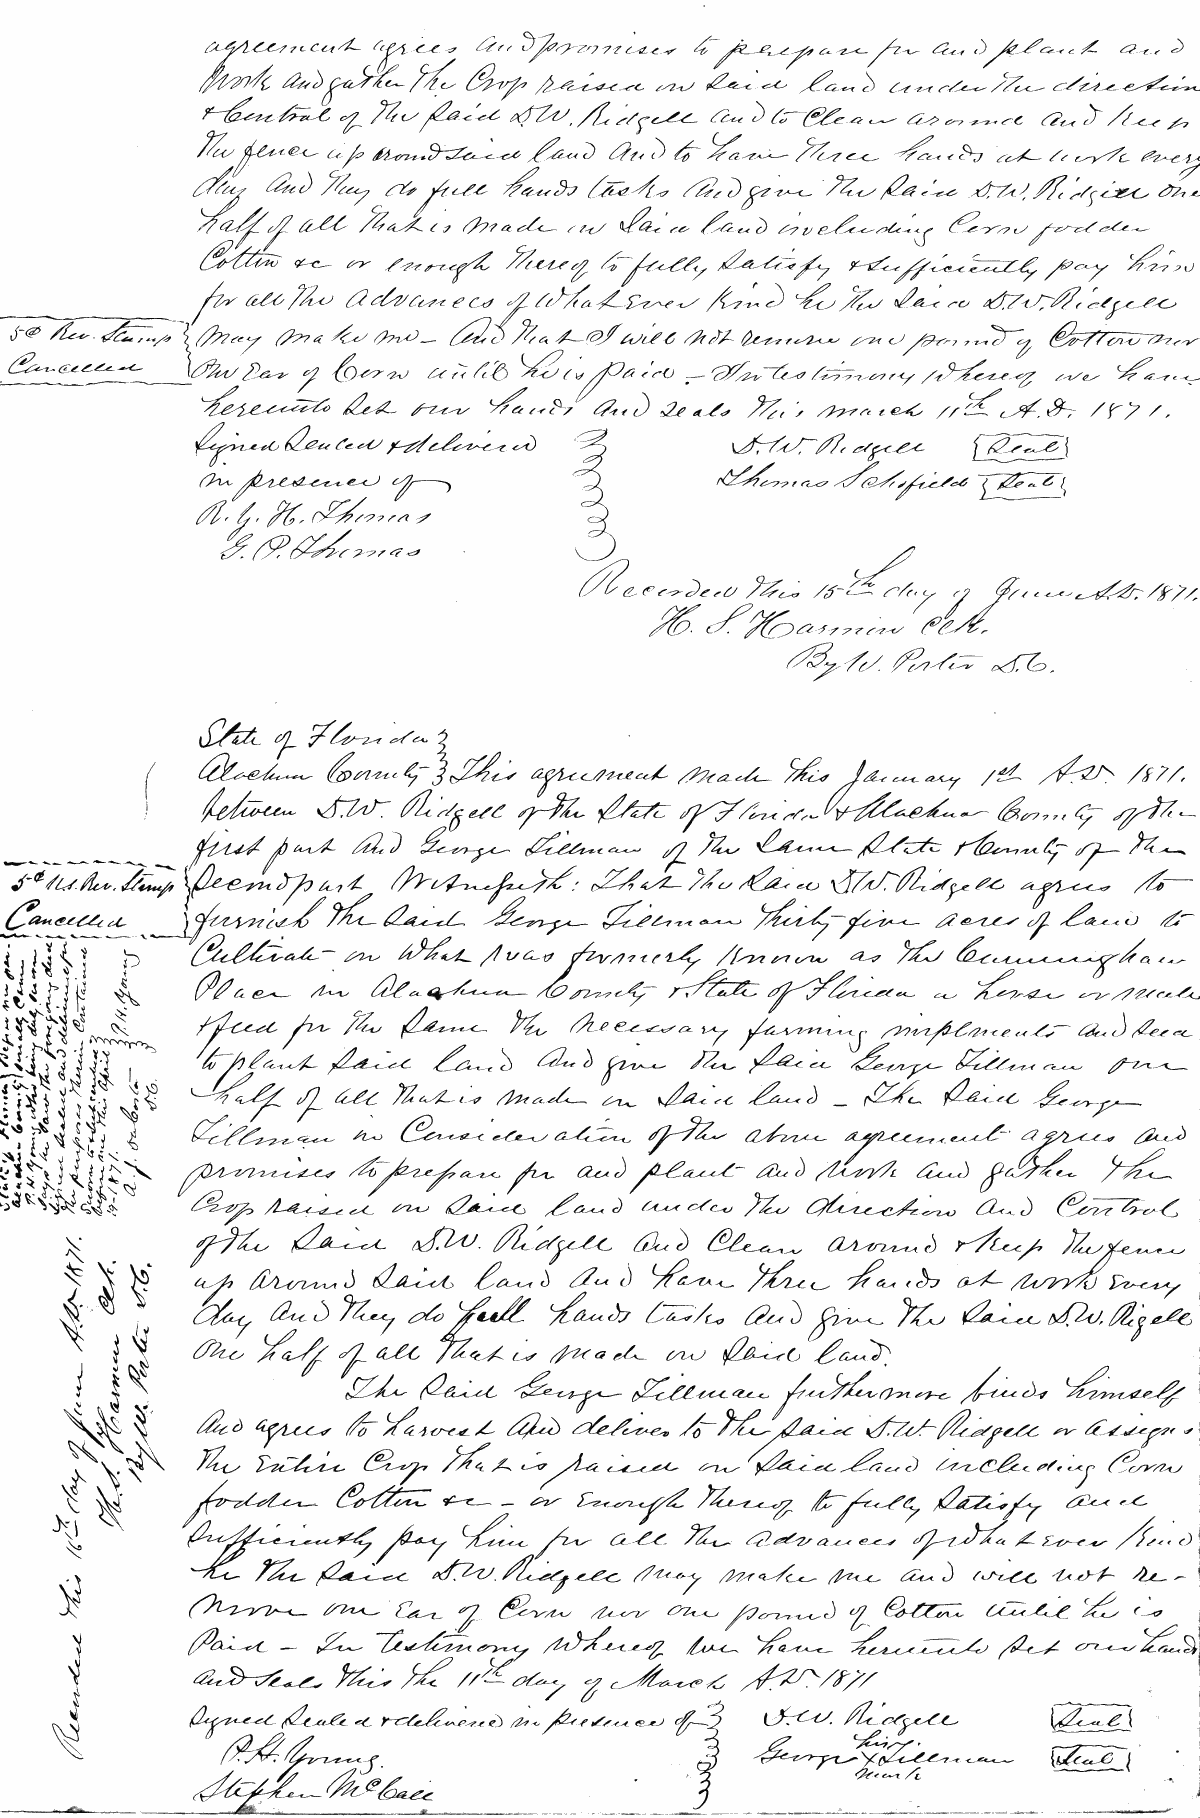 agreement agrees and promises to prepare for and plant and
work and gather the Crop raised on said land under the direction
& Control of the said D.W. Ridgell and to Clean around and keep
the fence up around said land and to have three hands at work every
day and they do full hands tasks and give the said D.W. Ridgell one
half of all that is made on said land including Corn fodder
Cotton &c or enough thereof to fully satisfy & sufficiently pay him
for all the advances of what ever kind he the said D.W. Ridgell
5c Rev. Stamp
Cancelled
may make me - and that I will not remove one pound of Cotton nor
one Ear of Corn until he is paid - In testimony whereof we have
hereunto set our hands and seals this march 11th A.D. 1871.
Signed Sealed & delivered
in presence of
R. Y. H. Thomas
G. P. Thomas
D.W. Ridgell Seal
Thomas Schofield Seal
Recorded this 15th day of June A.D. 1871.
H. S. Harmon Clk.
By W. Porter D.C.
State of Florida
Alachua County This agreement made this January 1st A.D. 1871.
between D.W. Ridgell of the State of Florida & Alachua County of the
first part and George Tillman of the Same State & County of the
5c U.S. Rev. Stamp
Cancelled
Second part Witnesseth: That the said D.W. Ridgell agrees to
furnish the said George Tillman thirty five acres of land to
Cultivate on what was formerly known as the Cunningham
Place in Alachua County & State of Florida a horse or mule
& feed for the same the necessary farming implments and seed
to plant said land and give the said George Tillman one
half of all that is made on said land - The said George
Tillman in Consideration of the above agreement agrees and
promises to prepare for and plant and work and gather the
Crop raised on said land under the direction and Control
of the said D.W. Ridgell and Clean around & keep the fence
up around said land and have three hands at work every
day and they do full hands tasks and give the said D.W. Rigell
one half of all that is made on said land.
The said George Tillman furthermore binds himself
and agrees to harvest and deliver to the said D.W. Ridgell or assigns
the Entire Crop that is raised on said land including Corn
fodder Cotton &c - or enough thereof to fully satisfy and
sufficiently pay him for all the advances of what ever kind
he the said D.W. Ridgell may make me and will not re-
move one Ear of Corn nor one pound of Cotton until he is
Paid - In testimony whereof we have hereunto set our hands
and seals this the 11th day of March A.D. 1871
Signed Sealed & delivered in presence of
P. H. Young.
Stephen McCall
D.W. Ridgell Seal
his
George X Tillman Seal
mark
P. H. Young
D.C.
Recorded this 15th day of June A.D. 1871.
H. S. Harmon Clk.
By W. Porter D.C.